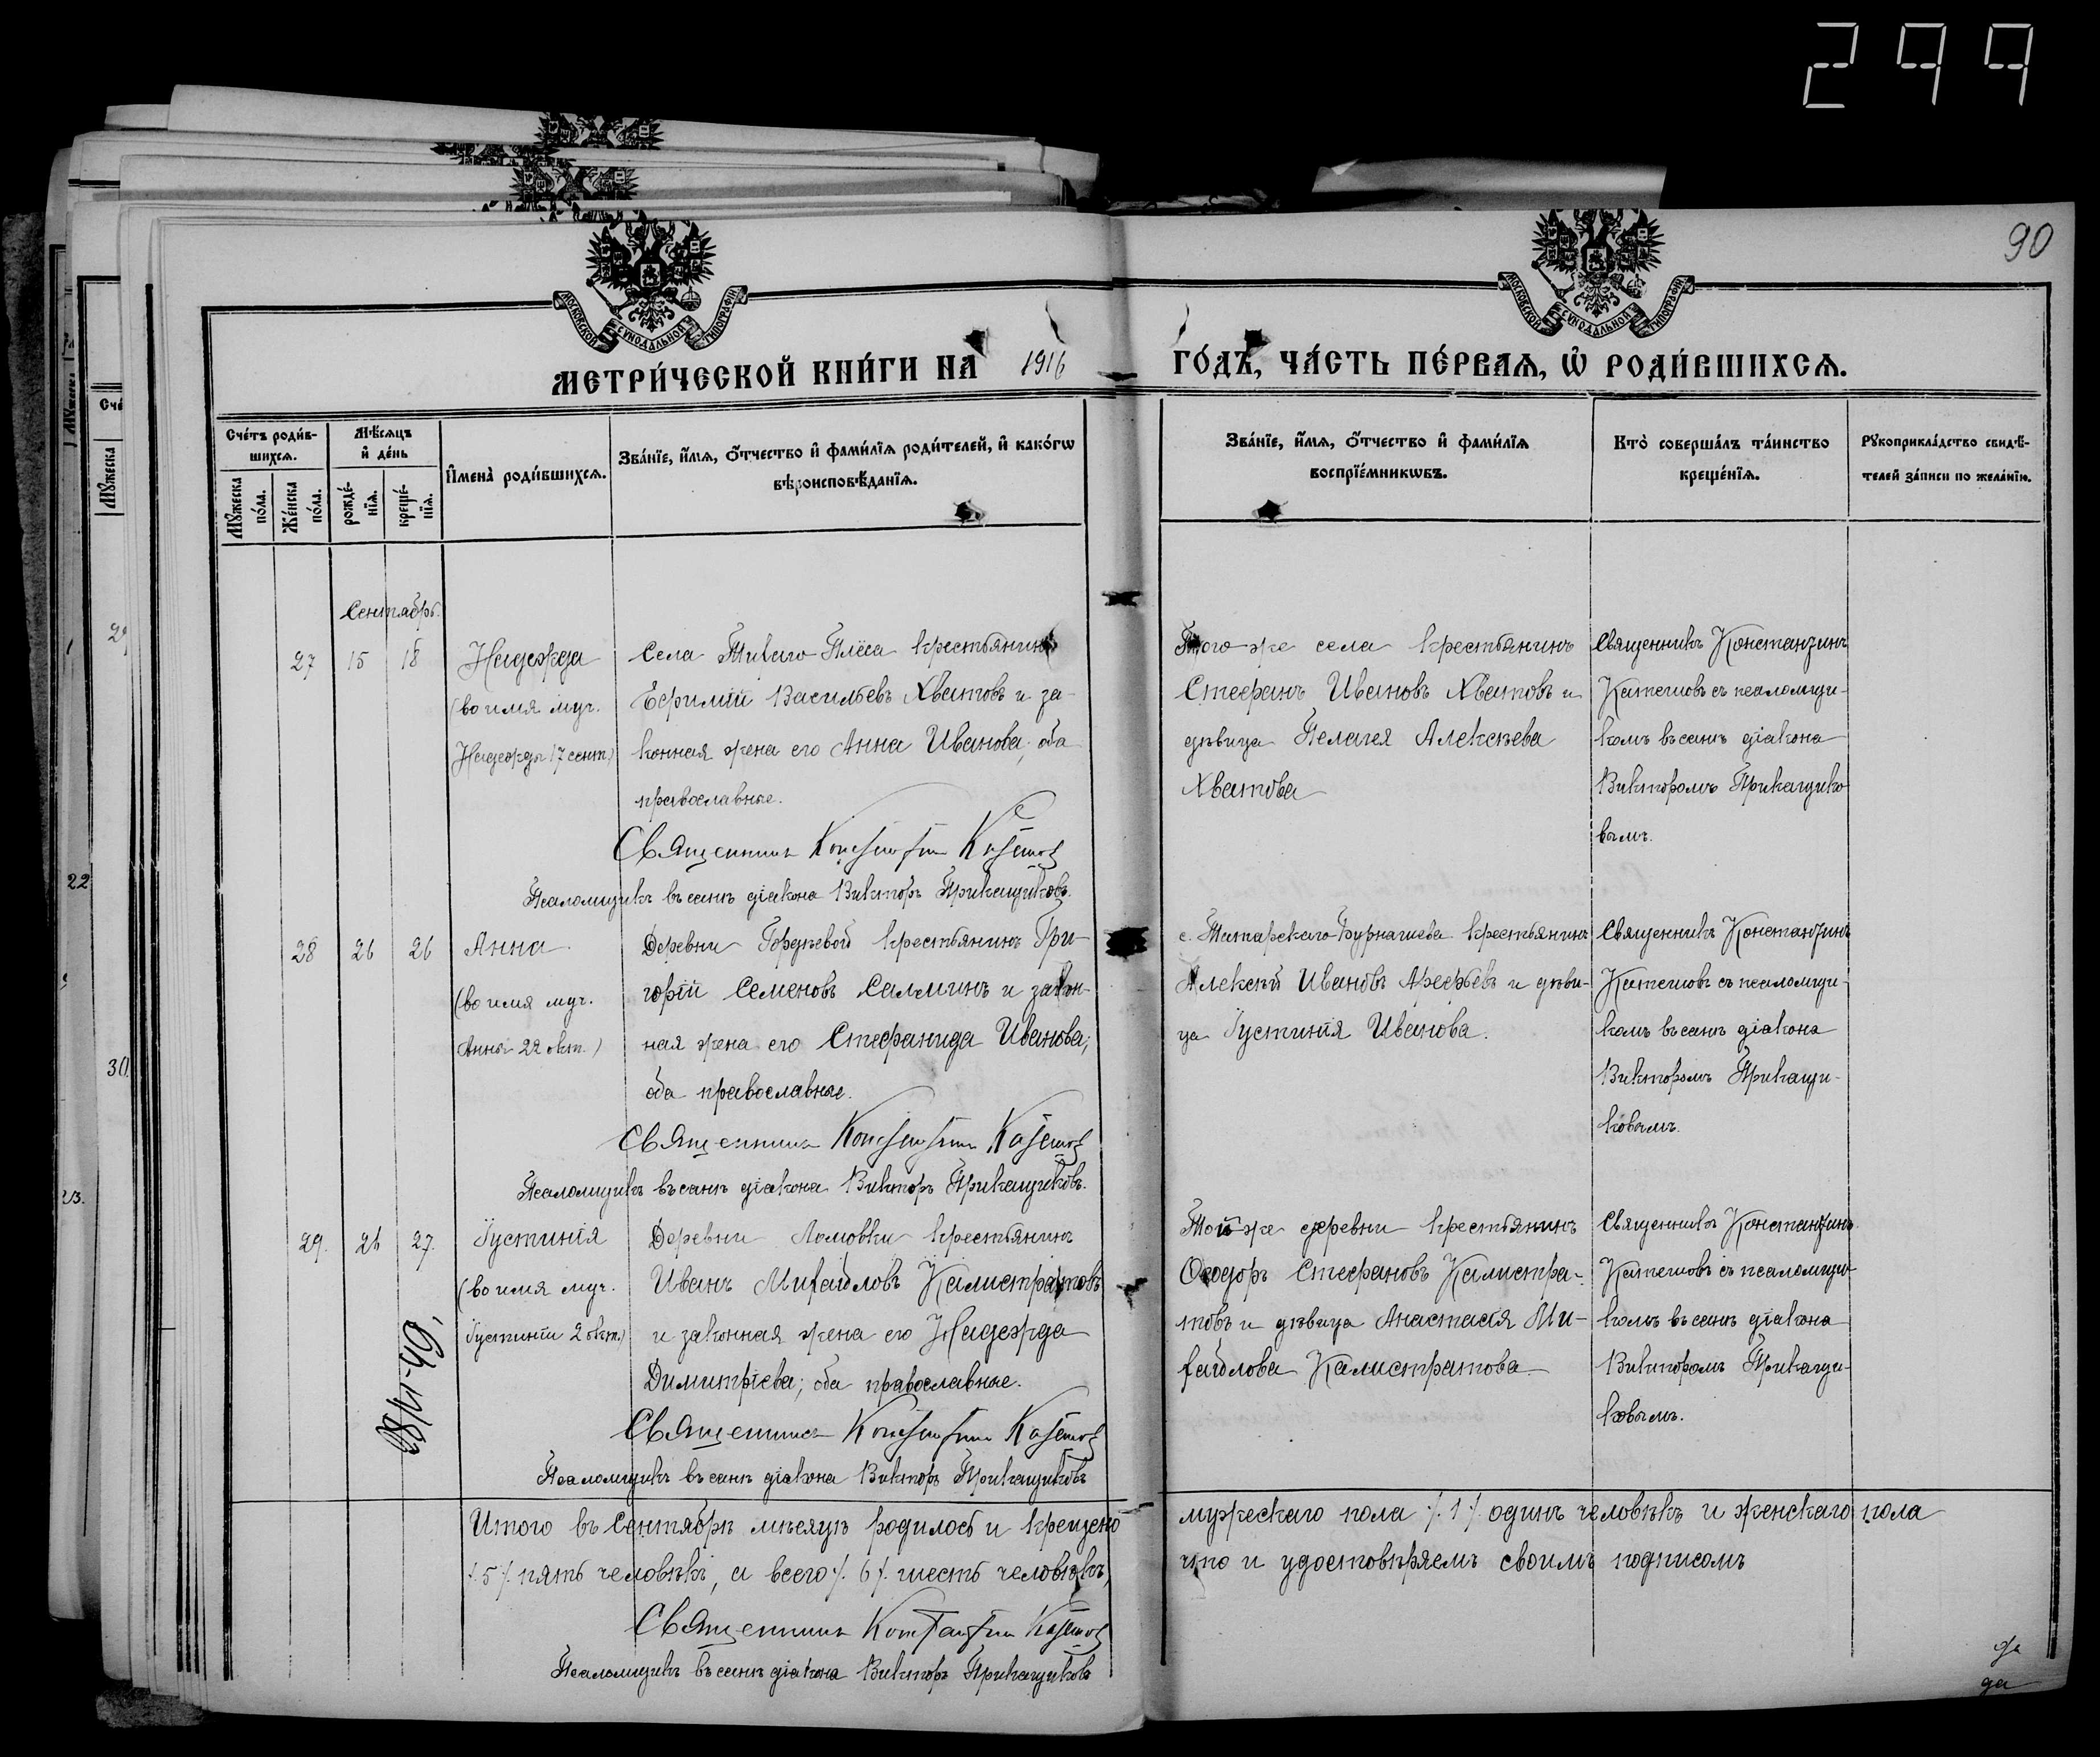 299
90
МОСКОВСКОЙ СѴНОДАЛЬНОЙ ТИПОГРАФІИ
МОСКОВСКОЙ СѴНОДАЛЬНОЙ ТИПОГРАФІИ
МЕТРИ́ЧЕСКОЙ КНИ́ГИ НА 1916 ГО́ДЪ, ЧА́СТЬ ПЕ́РВАѦ, Ѡ҆ РОДИ́ВШИХСѦ.
Сче́тъ роди́в-
шихсѧ.
Мꙋ́жеска по́ла.
Же́нска по́ла.
Мѣ́сѧцъ
и҆ де́нь
рожде́-
нїѧ.
креще́-
нїѧ.
И҆мена̀ роди́вшихсѧ.
Зва́нїе, и҆́мѧ, ѻ҆́тчество и҆ фами́лїѧ роди́телей, и҆ како́гѡ
вѣроисповѣ́данїѧ.
Зва́нїе, и҆́мѧ, ѻ҆́тчество и҆ фами́лїѧ
воспрїе́мникѡвъ.
Кто̀ соверша́лъ та́инство
креще́нїѧ.
Рꙋкоприкла́дство свидѣ́-
телей за́писи по жела́нїю.
Сентябрь.
27 15 18
Надежда
(во имя муч.
Надежды 17 сент.)
Села Плёса крестьянинъ
Ефимій Васильевъ Хватовъ и за-
конная жена его Анна Иванова; оба
православные.
Священникъ Константин Катешов
Псаломщикъ въ санѣ діакона Викторъ Прикащиковъ.
Того-же села крестьянинъ
Стефанъ Ивановъ Хватовъ и
дѣвица Пелагея Алексѣева
Хватова
Священникъ Константинъ
Катешовъ съ псаломщи-
комъ въ санѣ діакона
Викторомъ Прикащико-
вымъ.
28 26 26
Анна
(во имя муч.
Анны 22 окт.)
Деревни Гордѣевой крестьянинъ Гри-
горій Семеновъ Салминъ и закон-
ная жена его Стефанида Иванова;
оба православные.
Священникъ Константин Катешов
Псаломщикъ въ санѣ діакона Викторъ Прикащиковъ.
с. Татарскаго-Бурнашева крестьянинъ
Алексѣй Ивановъ Арефьевъ и дѣви-
ца Іустинія Иванова.
Священникъ Константинъ
Катешовъ съ псаломщи-
комъ въ санѣ діакона
Викторомъ Прикащи-
ковымъ.
29. 26 27.
Іустинія
(во имя муч.
Іустиніи 2 окт.)
Деревни Ломовки крестьянинъ
Иванъ Михайловъ Калистратовъ
и законная жена его Надежда
Димитріева; оба православные.
Священникъ Константин Катешов
Псаломщикъ въ санѣ діакона Викторъ Прикащиковъ
Той-же деревни крестьянинъ
Ѳеодоръ Стефановъ Калистра-
товъ и дѣвица Анастасія Ми-
хайлова Калистратова.
Священникъ Константинъ
Катешовъ съ псаломщи-
комъ въ санѣ діакона
Викторомъ Прикащи-
ковымъ.
Итого въ Сентябрѣ мѣсяцѣ родилось и крещено мужескаго пола /.1/. одинъ человѣкъ и женскаго пола
/.5/. пять человѣкъ, а всего /.6/. шесть человѣкъ, что и удостовѣряемъ своимъ подписомъ
Священникъ Константин Катешов
Псаломщикъ въ санѣ діакона Викторъ Прикащиковъ
22
30.
23.